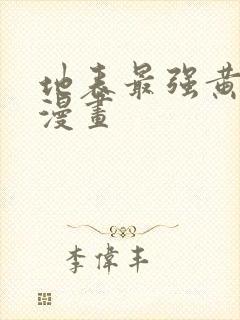 地表最强黄
漫畫
李偉丰